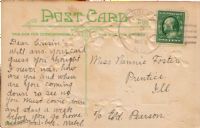 POST CARD
Dear Cousin
will ans your card
guess you thought
I never was. how
are you and when
are you coming
down to see us
You must come down
and stay a week
before you go home
Miss Nannie Foster
Prentice
Ill
To Old Person